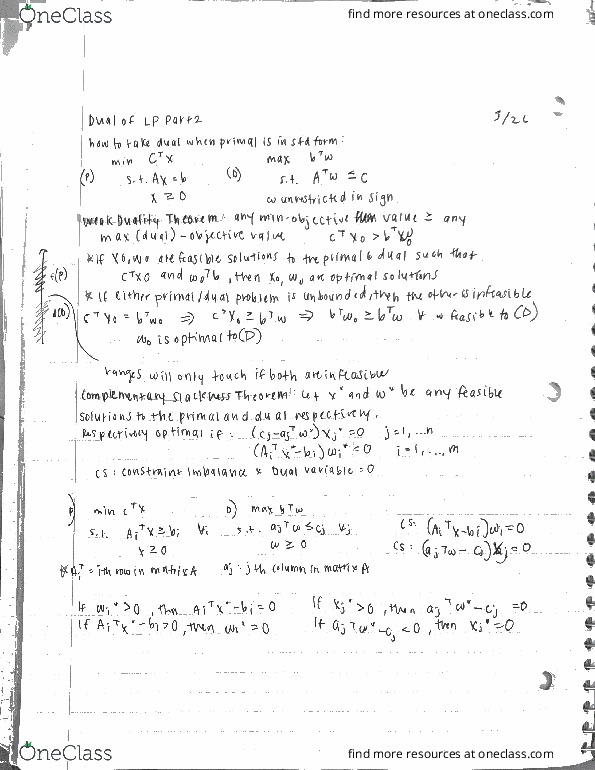 OneClass
find more resources at oneclass.com
Dual of LP Part 2
3/26
how to take dual when primal is in std form:
min C^T x max b^T w
(P) s.t. Ax = b (D) s.t. A^T w ≤ C
x ≥ 0 w unrestricted in sign
Weak Duality Theorem: any min-objective value ≥ any
max (dual) - objective value C^T x0 > b^T w0
*if x0, w0 are feasible solutions to the primal & dual such that
C^T x0 and w0^T b, then x0, w0 are optimal solutions
* If either primal/dual problem is unbounded, then the other is infeasible
c^T x0 = b^T w0 ⇒ c^T x0 ≥ b^T w ⇒ b^T w0 ≥ b^T w ∀ feasible to (D)
w0 is optimal to (D)
ranges will only touch if both are infeasible
Complementary Slackness Theorem: Let x* and w* be any feasible
solutions to the primal and dual respectively.
Respectively optimal if: (cj - aj^T w*) xj* = 0 j = 1, ... n
(Ai^T x* - bi) wi* = 0 i = 1, ..., m
CS: constraint imbalance × Dual variable = 0
P) min c^T x D) max b^T w
s.t. Ai^T x ≥ bi ∀i s.t. aj^T w ≤ cj ∀j CS: (Ai^T x - bi) wi = 0
x ≥ 0 w ≥ 0 CS: (aj^T w - cj) xj = 0
* Ai^T = ith row in matrix A aj: jth column in matrix A
If wi* > 0, then Ai^T x* - bi = 0 If xj* > 0, then aj^T w* - cj = 0
If Ai^T x* - bi > 0, then wi* = 0 If aj^T w* - cj < 0, then xj* = 0
OneClass
find more resources at oneclass.com